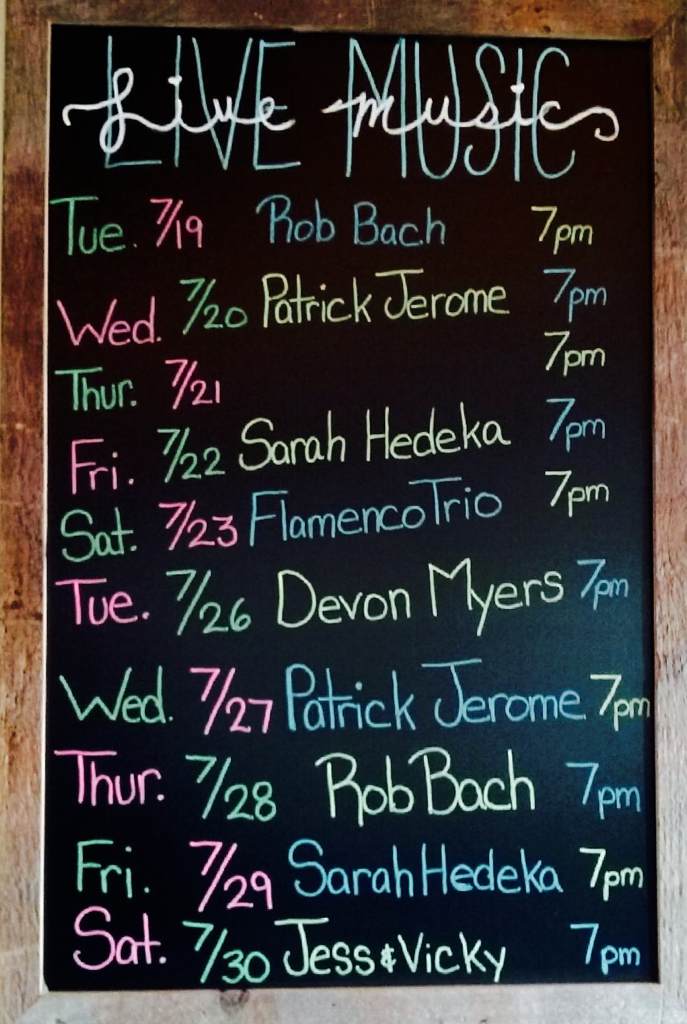 LIVE MUSIC
Live music
Tue. 7/19 Rob Bach 7pm
Wed. 7/20 Patrick Jerome 7pm
Thur. 7/21 7pm
Fri. 7/22 Sarah Hedeka 7pm
Sat. 7/23 Flamenco Trio 7pm
Tue. 7/26 Devon Myers 7pm
Wed. 7/27 Patrick Jerome 7pm
Thur. 7/28 Rob Bach 7pm
Fri. 7/29 Sarah Hedeka 7pm
Sat. 7/30 Jess & Vicky 7pm